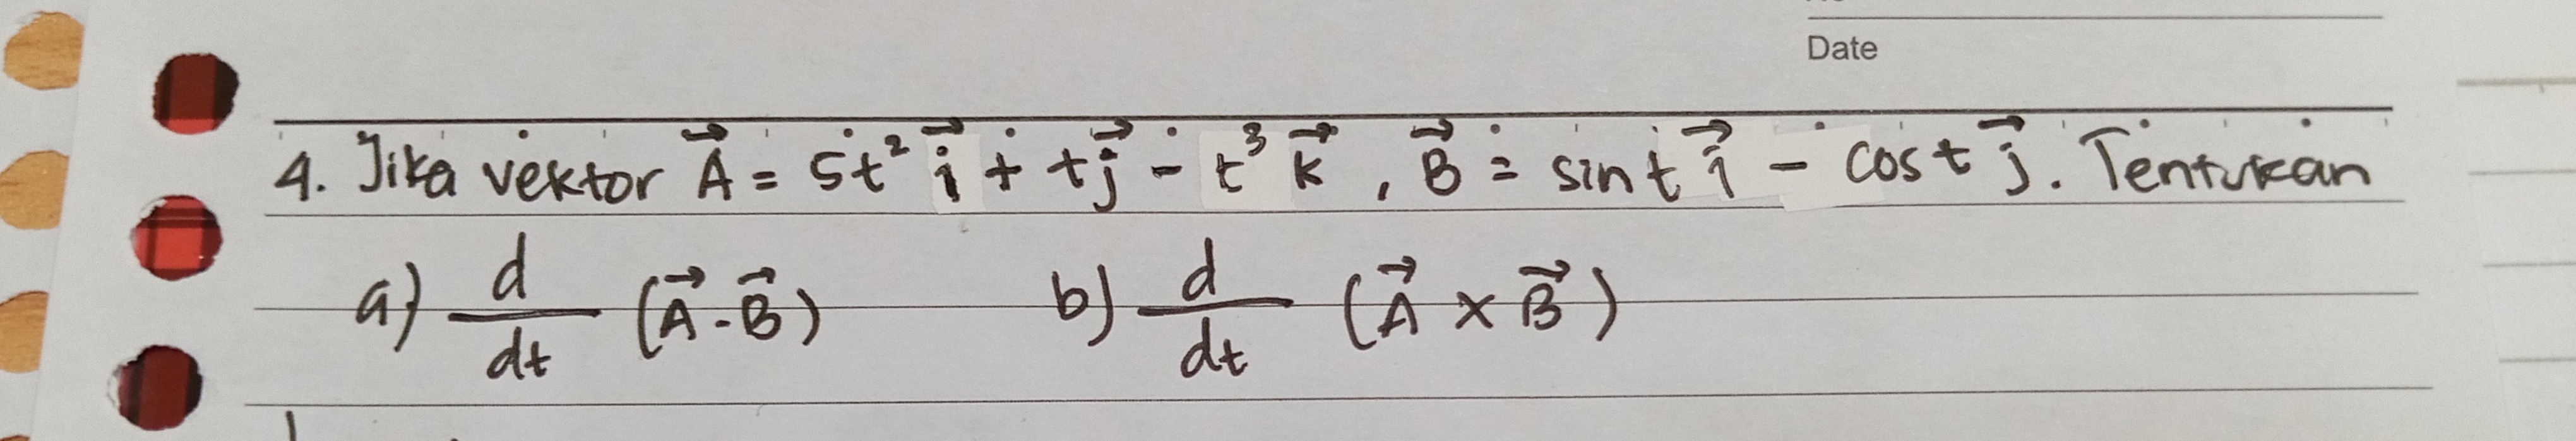 Date
4. Jika vektor A⃗ = 5t² i⃗ + tj⃗ - t³ k⃗ , B⃗ = sin t i⃗ - cos t j⃗. Tentukan
a) d/dt (A⃗ . B⃗) b) d/dt (A⃗ × B⃗)